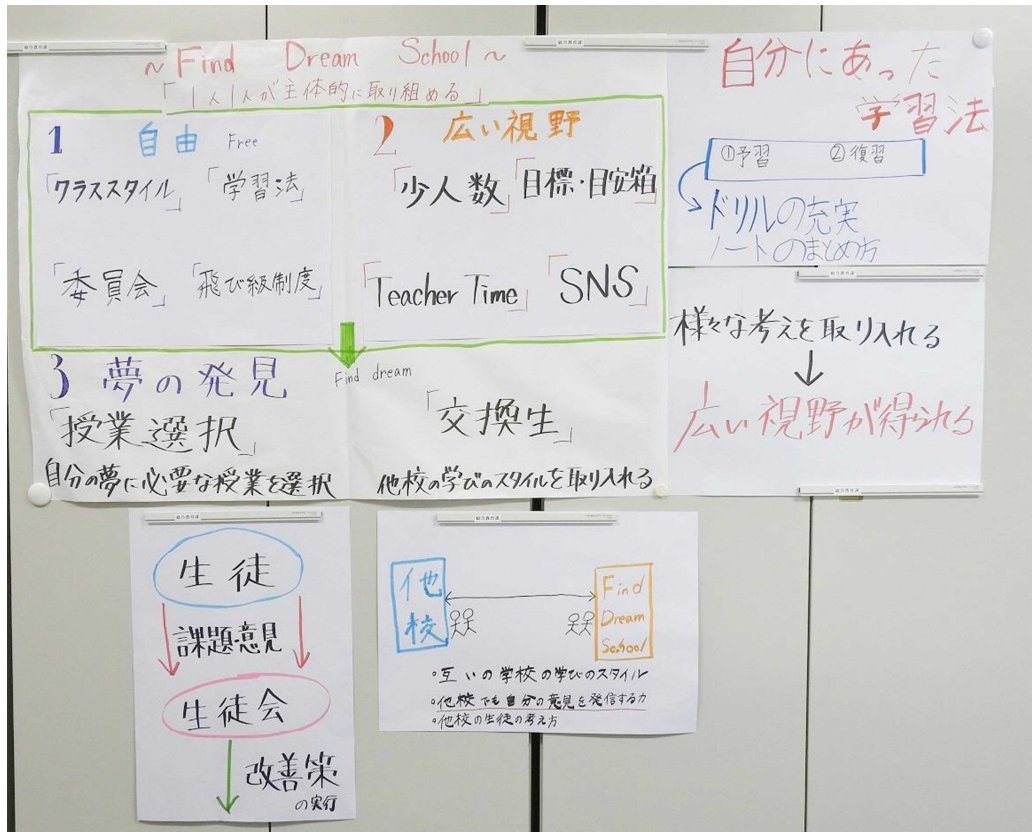 ～Find Dream School～
「1人1人が主体的に取り組める」
1 自由 Free
「クラススタイル」「学習法」
「委員会」「飛び級制度」
2 広い視野
「少人数」「目標・目安箱」
「Teacher Time」「SNS」
3 夢の発見 Find dream
「授業選択」
自分の夢に必要な授業を選択
「交換生」
他校の学びのスタイルを取り入れる
自分にあった
学習法
①予習 ②復習
ドリルの充実
ノートのまとめ方
様々な考えを取り入れる
広い視野が得られる
生徒
課題・意見
生徒会
改善策
の実行
他校
Find
Dream
School
・互いの学校の学びのスタイル
・他校でも自分の意見を発信する力
・他校の生徒の考え方